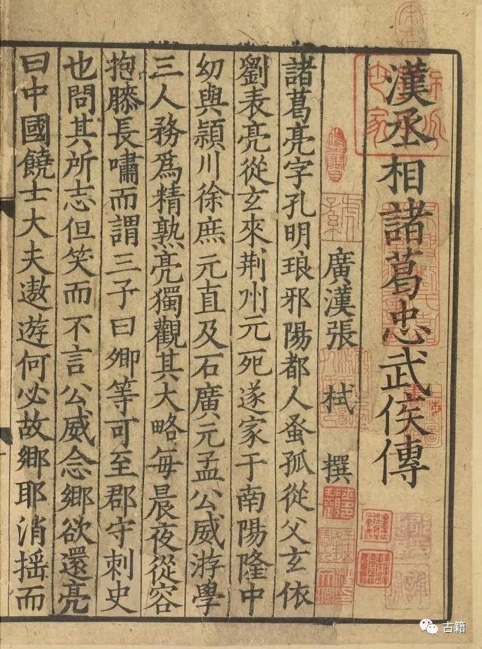 漢丞相諸葛忠武侯傳
廣漢張 栻 撰
諸葛亮字孔明琅邪陽都人蚤孤從父玄依
劉表亮從玄來荆州元死遂家于南陽隆中
幼與潁川徐庶元直及石廣元孟公威游學
三人務爲精熟亮獨觀其大略每晨夜從容
抱膝長嘯而謂三子曰卿等可至郡守刺史
也問其所志但笑而不言公威念鄉欲還亮
曰中國饒士大夫遨遊何必故鄉耶消摇而
古籍